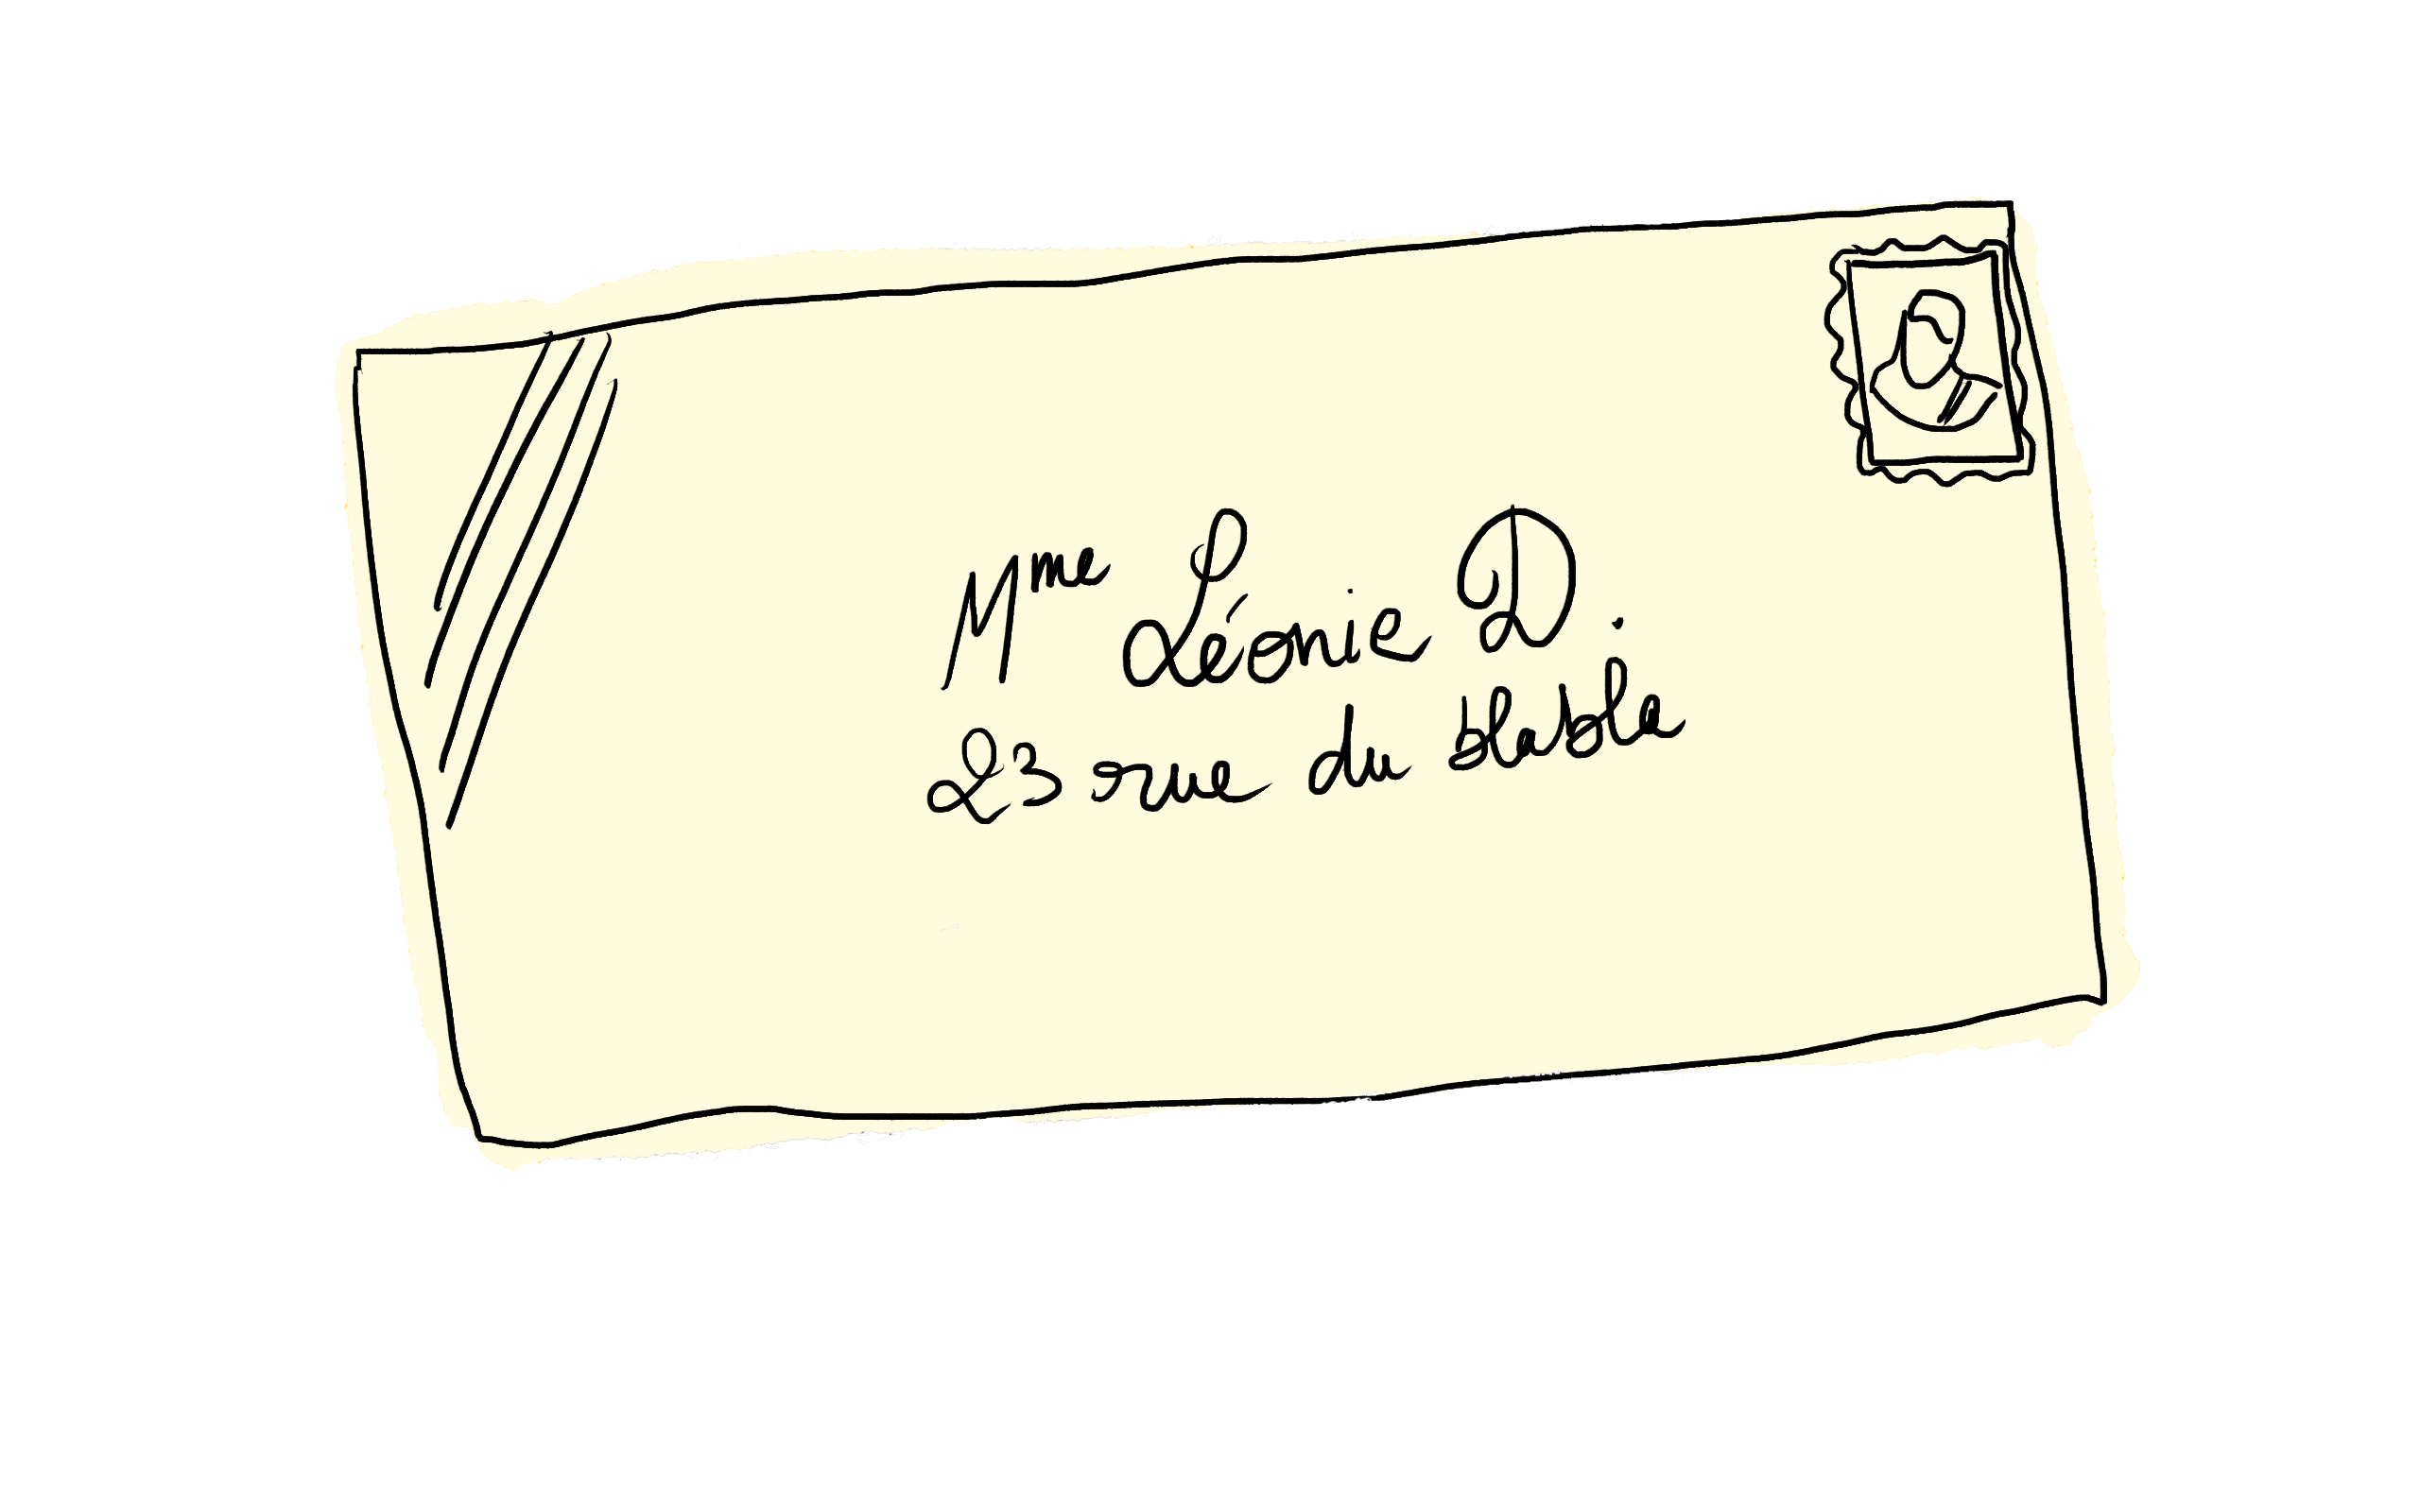 Mme Léonie D.
23 rue du Hable